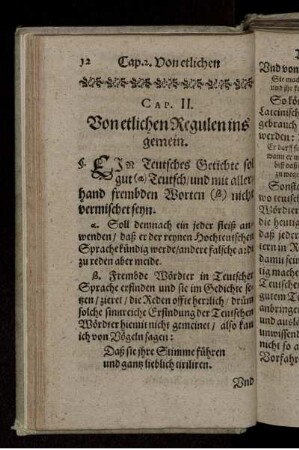 32 Cap. 2. Von etlichen
CAP. II.
Von etlichen Regulen ins
gemein.
§. EIn Teutsches Getichte sol
gut (α) Teutsch / und mit aller
hand frembden Worten (β) nicht
vermischet seyn.
α. Soll demnach ein jeder fleiß an-
wenden / daß er der reynen Hochteutschen
Sprache kündig werde / andere falsche
zu reden aber meide.
β. Frembde Wördter in Teutscher
Sprache erfinden und sie im Gedichte se-
tzen / zieret / die Reden offte herzlich / drüm
solche sinnreiche Erfindung der Teutschen
Wördter hiemit nicht gemeinet / also kan
ich von Vögeln sagen:
Daß sie ihre Stimme führen
und gantz lieblich tiriliren.
Und
Und von
Sie mach
und ihr
So kön
Lateinisch
gebrauch
werden:
Er darff
wann er
deß
zu
Sonst
wo Teutsche
Wördter
die fremb
daß jeder
tern in R
damit
wenig
Teutsche
gutem T
anbringen
und ausl
unwissend
nicht so a
Vorfahr